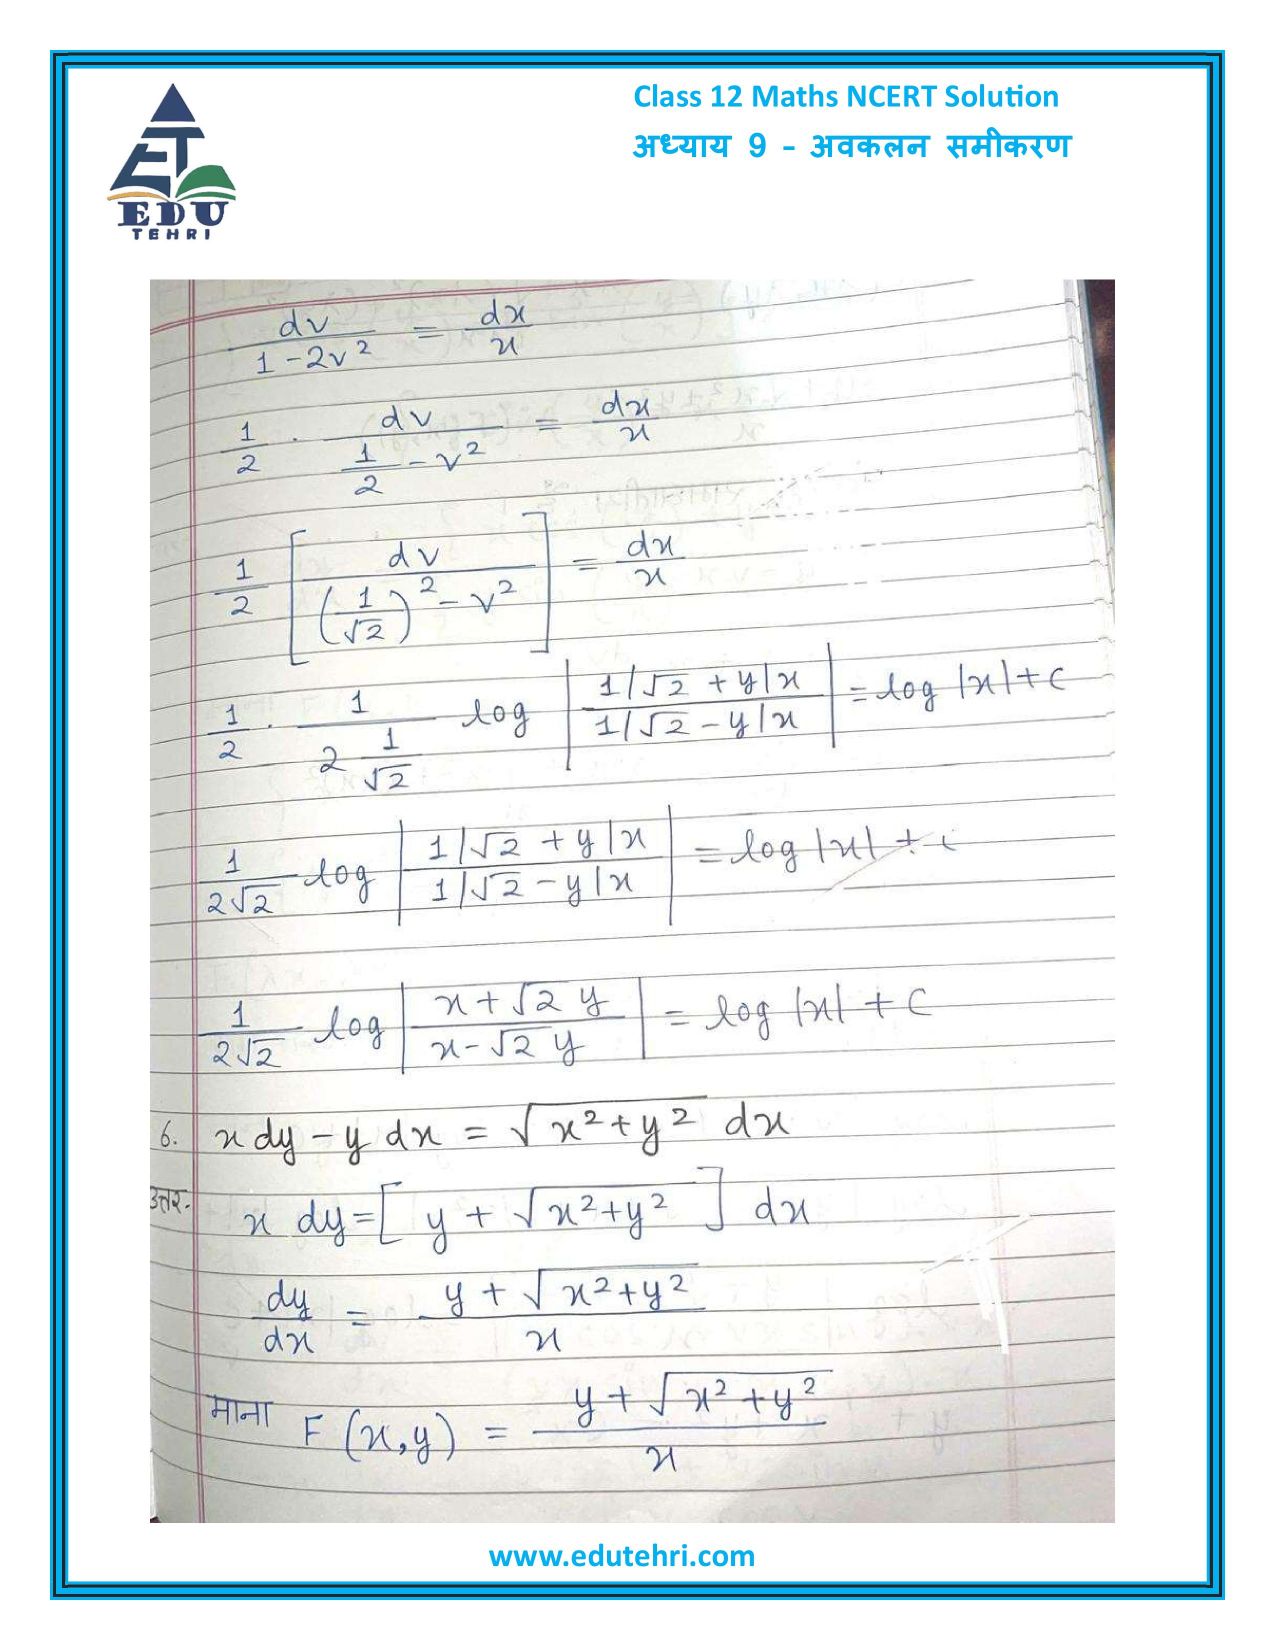 Class 12 Maths NCERT Solution
अध्याय 9 – अवकलन समीकरण
EDU
TEHRI
dv/(1-2v²) = dx/x
1/2 · dv/(1/2 - v²) = dx/x
1/2 [dv/((1/√2)² - v²)] = dx/x
1/2 · 1/(2 1/√2) log |(1/√2 + y/x)/(1/√2 - y/x)| = log |x| + c
1/(2√2) log |(1/√2 + y/x)/(1/√2 - y/x)| = log |x| + c
1/(2√2) log |(x + √2 y)/(x - √2 y)| = log |x| + c
6. x dy - y dx = √(x² + y²) dx
उत्तर. x dy = [y + √(x² + y²)] dx
dy/dx = (y + √(x² + y²))/x
माना F(x, y) = (y + √(x² + y²))/x
www.edutehri.com